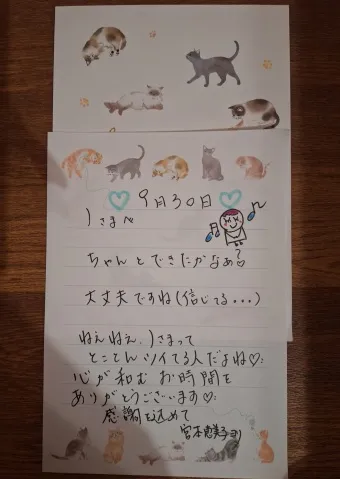 ♡ 9月30日 ♡
Jさまへ
ちゃんとできたかなぁ?♡
大丈夫ですね(信じてる...)
ねぇねぇ、Jさまって
とことんツイてる人だよね♡
心が和むお時間を
ありがとうございます♡
感謝を込めて
宮本恵美子より